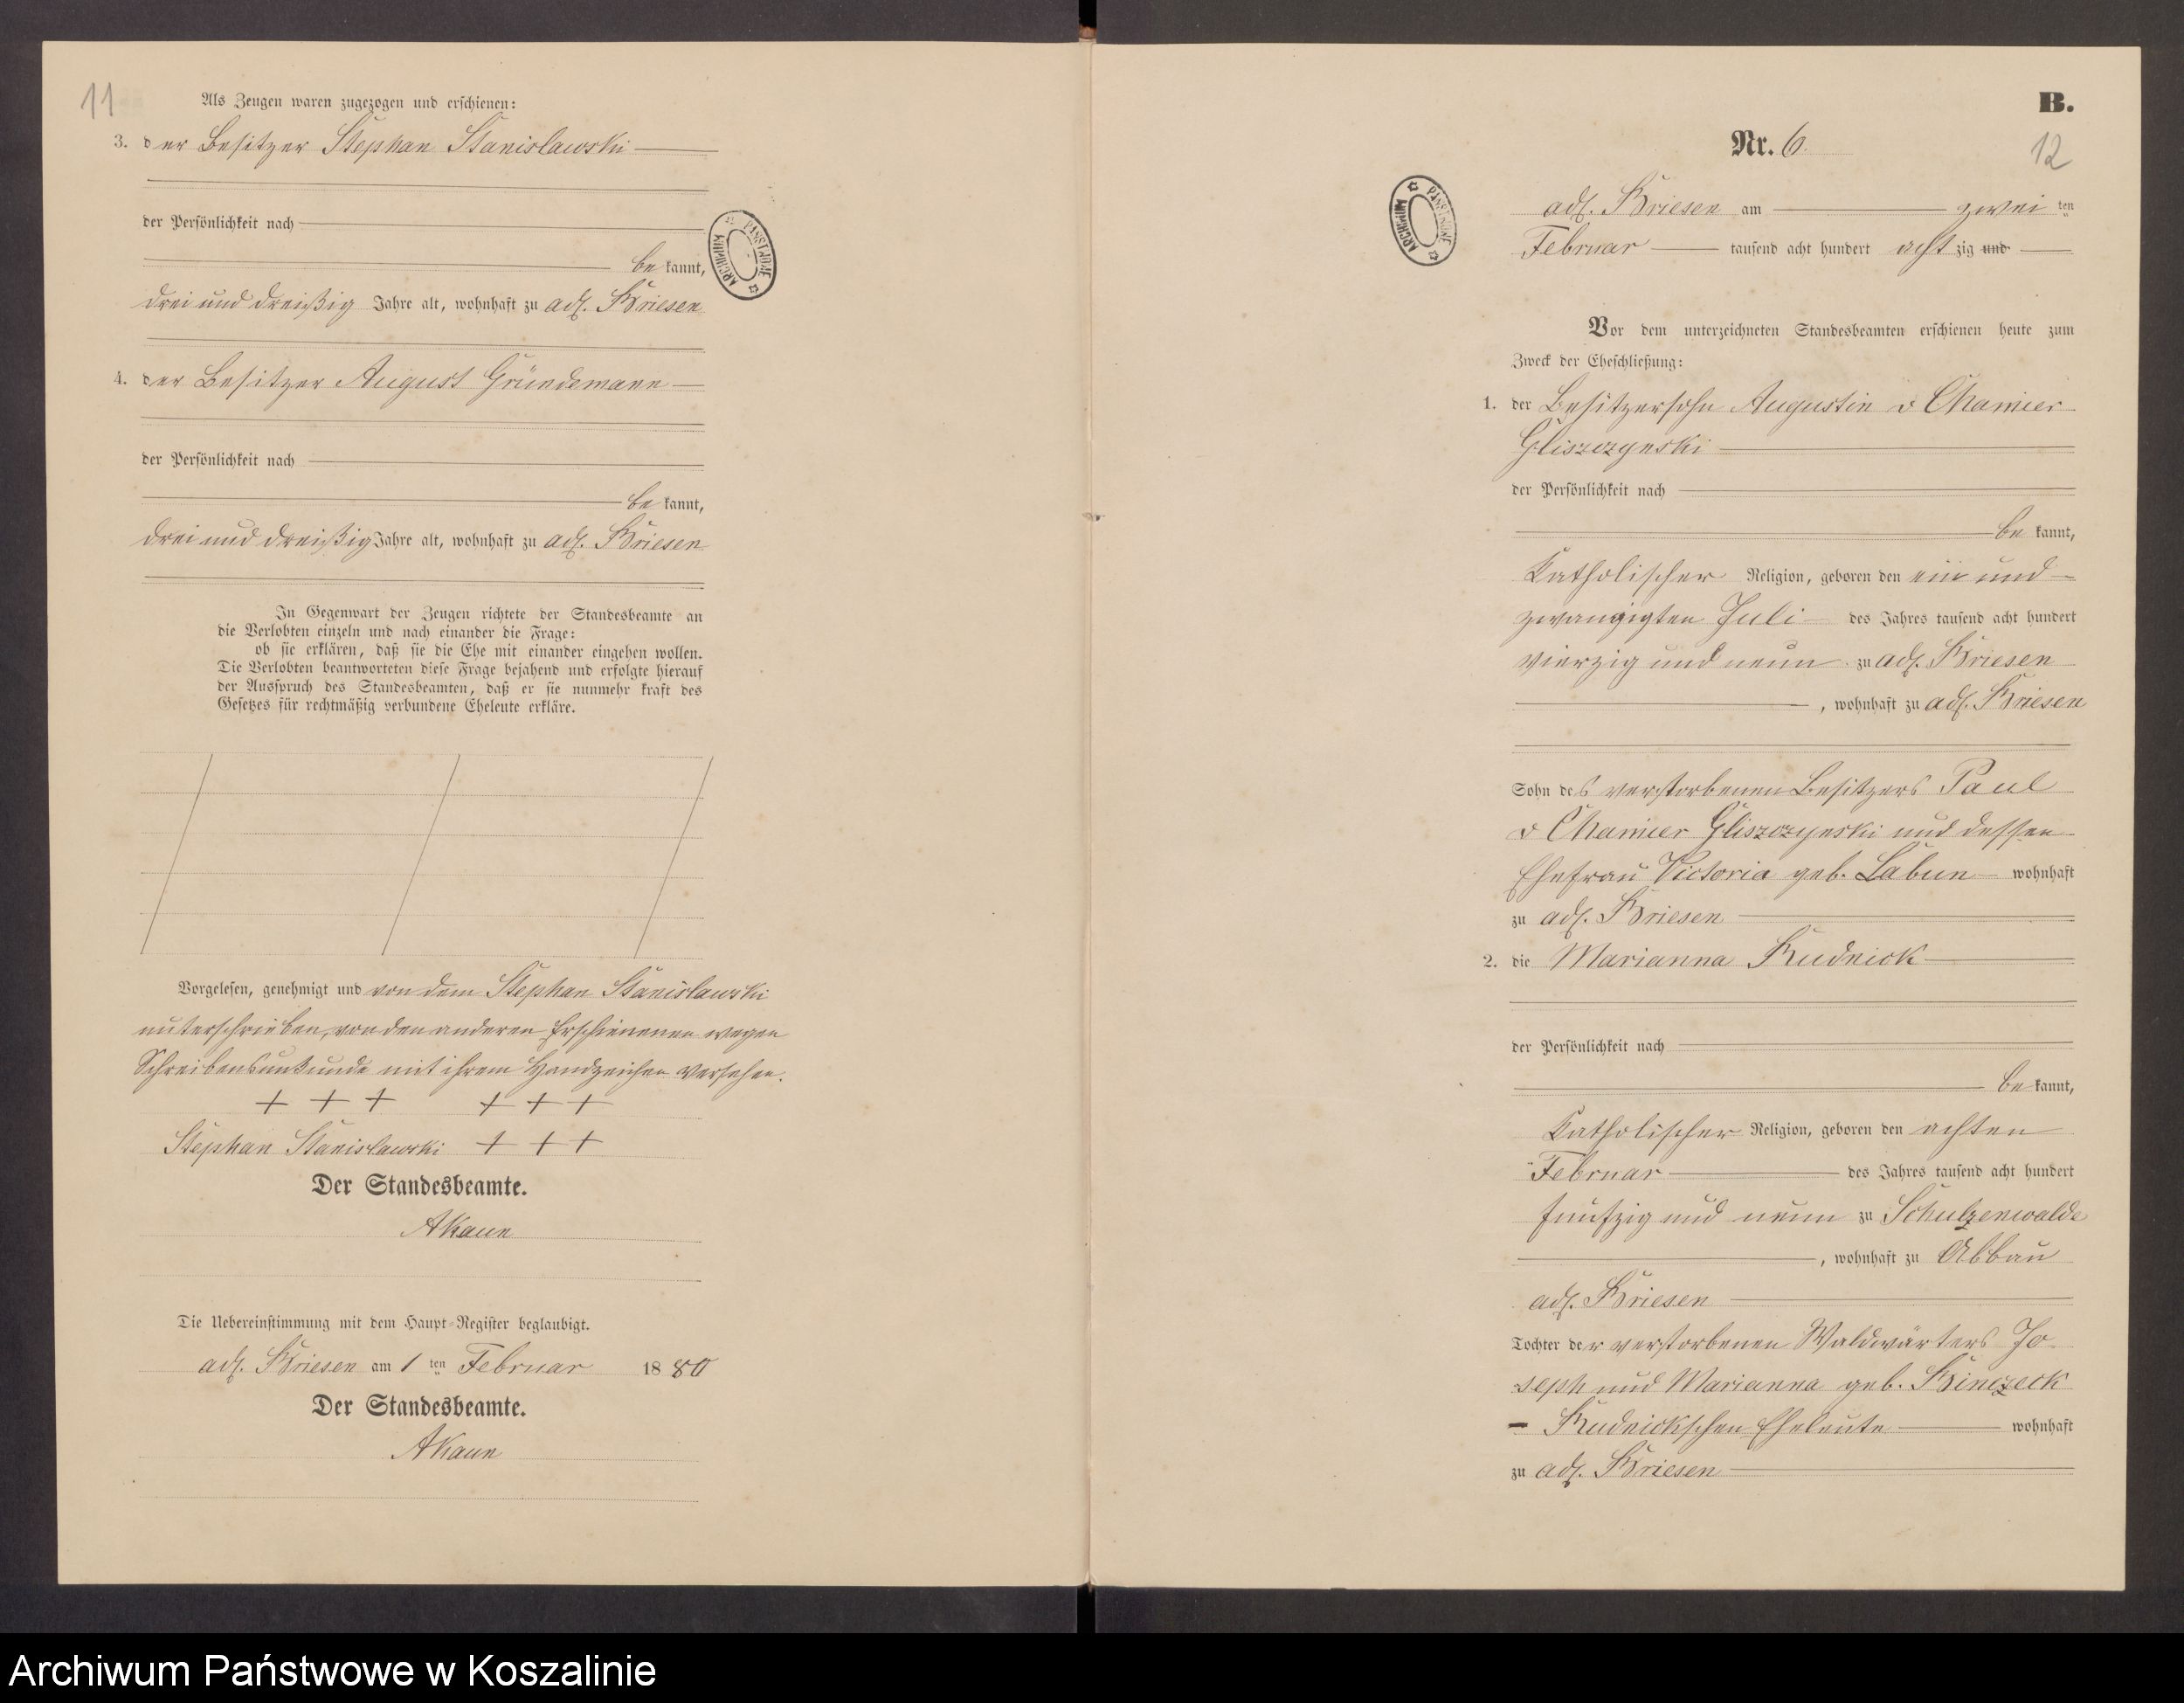 11
Als Zeugen waren zugezogen und erschienen:
3. der Besitzer Stephan Stanislawski
der Persönlichkeit nach
be kannt,
drei und dreißig Jahre alt, wohnhaft zu adl. Briesen
4. der Besitzer August Gründemann
der Persönlichkeit nach
be kannt,
drei und dreißig Jahre alt, wohnhaft zu adl. Briesen
In Gegenwart der Zeugen richtete der Standesbeamte an
die Verlobten einzeln und nach einander die Frage:
ob sie erklären, daß sie die Ehe mit einander eingehen wollen.
Die Verlobten beantworteten diese Frage bejahend und erfolgte hierauf
der Ausspruch des Standesbeamten, daß er sie nunmehr kraft des
Gesetzes für rechtmäßig verbundene Eheleute erkläre.
Vorgelesen, genehmigt und von dem Stephan Stanislawski
unterschrieben, von den anderen Erschienenen wegen
Schreibensunkunde mit ihrem Handzeichen versehen.
+ + + + + +
Stephan Stanislawski + + +
Der Standesbeamte.
AKaun
Die Uebereinstimmung mit dem Haupt-Register beglaubigt.
adl. Briesen am 1 ten Februar 1880
Der Standesbeamte.
AKaun
ARCHIWUM PAŃSTWOWE
B.
Nr. 6.
12
ARCHIWUM PAŃSTWOWE
adl. Briesen am zwei ten
Februar tausend acht hundert acht zig und
Vor dem unterzeichneten Standesbeamten erschienen heute zum
Zweck der Eheschließung:
1. der Besitzersohn Augustin v Chamier
Gliszczynski
der Persönlichkeit nach
be kannt,
Katholischer Religion, geboren den ein und
zwanzigten Juli des Jahres tausend acht hundert
vierzig und neun zu adl. Briesen
, wohnhaft zu adl. Briesen
Sohn des verstorbenen Besitzers Paul
v Chamier Gliszczynski und dessen
Ehefrau Victoria geb. Labun wohnhaft
zu adl. Briesen
2. die Marianna Rudnick
der Persönlichkeit nach
be kannt,
Katholischer Religion, geboren den achten
Februar des Jahres tausend acht hundert
fünfzig und neun zu Schulzenwalde
, wohnhaft zu Abbau
adl. Briesen
Tochter der verstorbenen Waldwärters Jo-
seph und Marianna geb.
Rudnickschen Eheleute wohnhaft
zu adl. Briesen
Archiwum Państwowe w Koszalinie